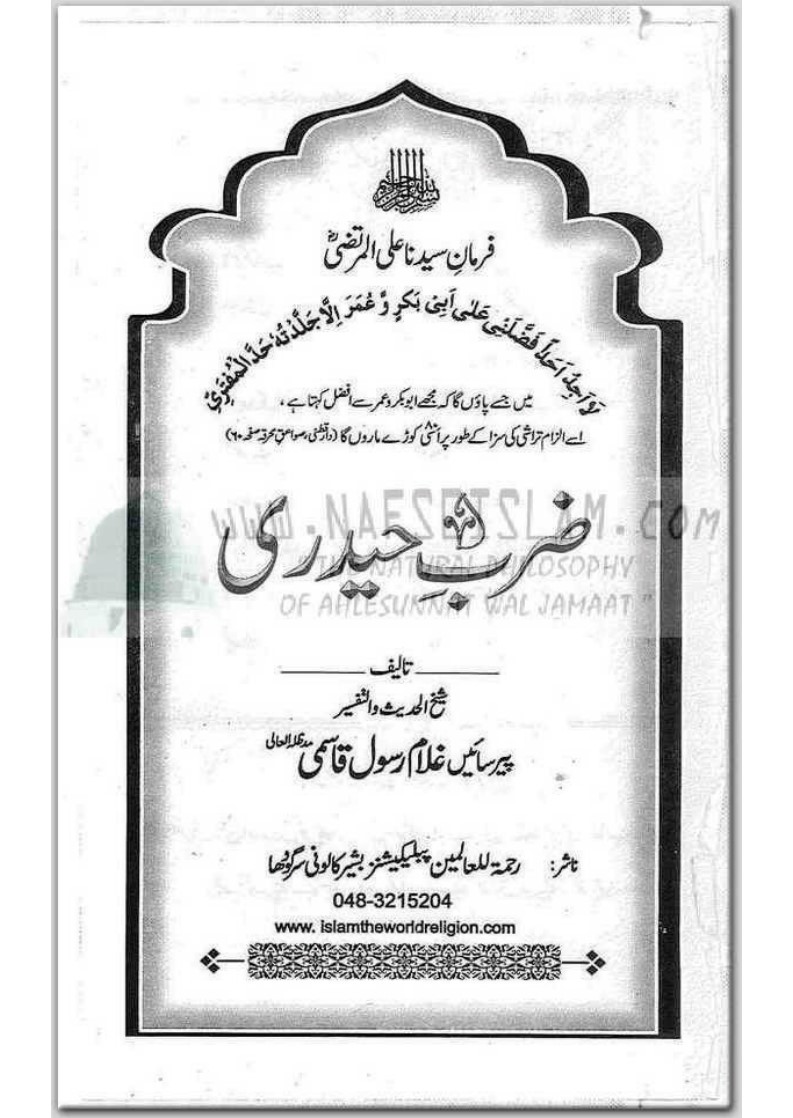 بسم الله الرحمن الرحيم
فرمانِ سیدنا علی المرتضیٰؓ
لَا اَجِدُ اَحَداً فَضَّلَنِی عَلٰی اَبِی بَکرٍ وَّ عُمَرَ اِلَّا جَلَّدْتُهٗ حَدَّ الْمُفْتَرِیْ
میں جسے پاؤں گا کہ مجھے ابوبکر و عمر سے افضل کہتا ہے ،
اسے الزام تراشی کی سزا کے طور پر اَسّی ۸۰ کوڑے ماروں گا (دارقطنی، صواعقِ محرقہ صفحہ ۶۰)
www.NAFSEISLAM.COM
ضربِ حیدری
"THE NATURAL PHILOSOPHY
OF AHLESUNNAT WAL JAMAAT"
تالیف
شیخ الحدیث والتفسیر
پیر سائیں غلام رسول قاسمی مدظلہ العالی
ناشر: رحمۃ للعالمین پبلیکیشنز بشیر کالونی سرگودھا
048-3215204
www. islamtheworldreligion.com